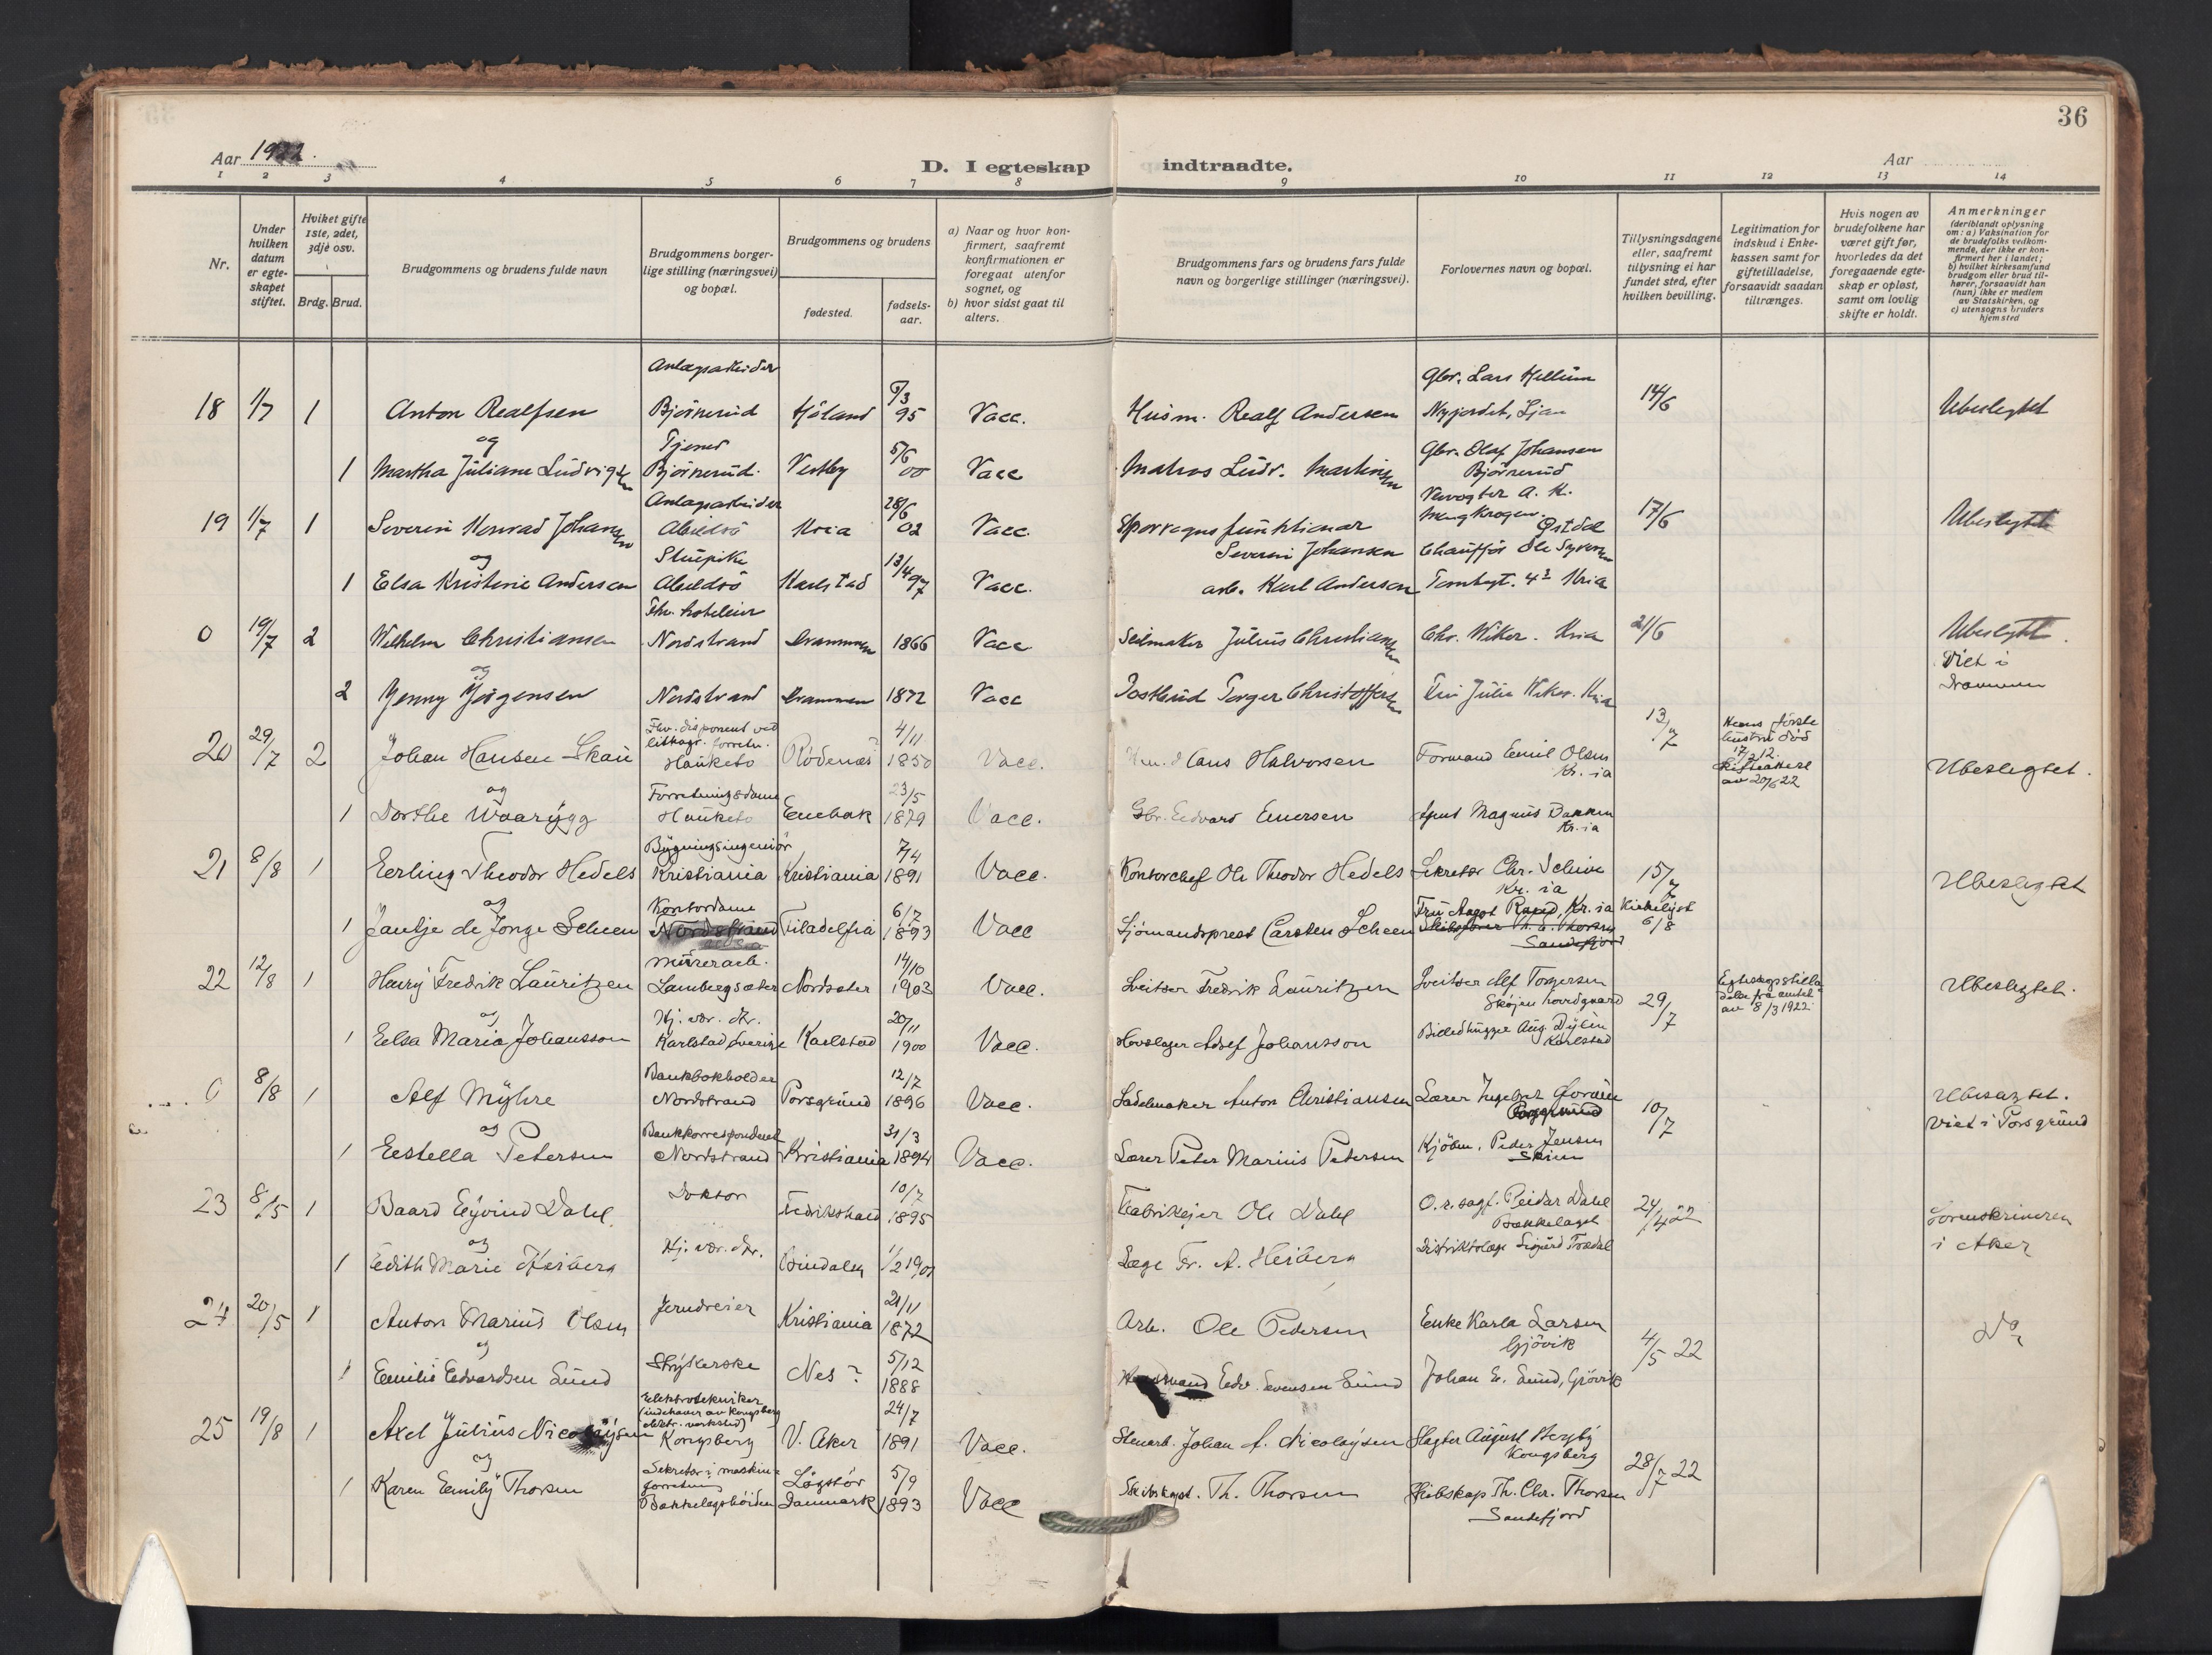 36
Aar 1922.
D. I egteskap indtraadte.
Aar
1 2 3 4 5 6 7 8 9 10 11 12 13 14
Nr.
Under hvilken datum er egteskapet stiftet.
Hvilket gifte 1ste, 2det, 3dje osv.
Brdg. Brud.
Brudgommens og brudens fulde navn
Brudgommens borgerlige stilling (næringsvei) og bopæl.
Brudgommens og brudens
fødested.
fødselsaar.
a) Naar og hvor konfirmert, saafremt konfirmationen er foregaat utenfor sognet, og
b) hvor sidst gaat til alters.
Brudgommens fars og brudens fars fulde navn og borgerlige stillinger (næringsvei).
Forlovernes navn og bopæl.
Tillysningsdagene eller, saafremt tillysning ei har fundet sted, efter hvilken bevilling.
Legitimation for indskud i Enkekassen samt for giftetilladelse, forsaavidt saadan tiltrænges.
Hvis nogen av brudefolkene har været gift før, hvorledes da det foregaaende egteskap er opløst, samt om lovlig skifte er holdt.
Anmerkninger (deriblandt oplysning om: a) Vaksination for de brudefolks vedkommende, der ikke er konfirmert her i landet; b) hvilket kirkesamfund brudgom eller brud tilhører, forsaavidt han (hun) ikke er medlem av Statskirken, og c) utensogns bruders hjemsted
18 1/7 1 Anton Realfsen Anlægsarbeider Bjørnerud Høland 5/3 95 Vacc. Husm. Realf Andersen Gbr. Lars Hellum Nyjordet, Ljan 14/6 Ubeslegtet
og
1 Martha Juliane Ludvigsen Tjener Bjørnerud. Vestby 5/6 00 Vacc Matros Ludv. Martinsen Gbr. Olaf Johansen Bjørnerud
19 1/7 1 Severin Konrad Johansen Anlagsarbeider Abildsø Kria 28/6 02 Vacc. Sporvognsfunktionær Severin Johansen 17/6 Ubeslegtet
og
1 Elsa Kristine Andersen Stuepike Abildsø Karlstad 13/4 97 Vacc. arb. Karl Anderson Chauffør Ole Syversen Kria
0 19/7 2 Wilhelm Christiansen Fhv. hoteleier Nordstrand Drammen 1866 Vacc Seilmaker Julius Christiansen Chr. Wiker. Kria 21/6 Ubeslegtet.
Viet i Drammen
og
2 Jenny Jørgensen Nordstrand Drammen 1872 Vacc Postbud Torger Christoffersen Fru Julie Wiker. Kria
20 29/7 2 Johan Hansen Skau Fhv. disponent ved Hauketo Rødenæs ? 4/11 1850 Vacc. Hans Halvorsen Formand Emil Olsen Kr.ia 13/7 Hans første hustru død 17/2 12. Skifteattest av 20/6 22 Ubeslegtet.
og
1 Dorthe Waarügg Forretningsdame Hauketo Enebak 23/5 1879 Vacc. Gbr. Edvard Enersen Magnus Bakken Kr.ia
21 8/8 1 Erling Theodor Hedels Bygningsingeniør Kristiania Kristiania 7/4 1891 Vacc. Kontorchef Ole Theodor Hedels Sekretær Chr. Schive Kr.ia 15/7 Ubeslegtet
og
1 Jantje de Jonge Scheen Kontordame Nordstrand Filadelfia 6/7 1893 Vacc Sjømandsprest Carsten Scheen Fru Aagot Kr.ia Skibsfører Th. Thorsen Sandefjord Kirkelyst 6/8
22 12/8 1 Harry Fredrik Lauritzen Murerarb. Lambergsæter Nordsæter 14/10 1903 Vacc. Sveitser Fredrik Lauritzen Sveitser Alf Torgersen Skøjen hovedgaard 29/7 Egteskapstilladelse fra amtet av 8/3 1922. Ubeslegtet.
og
1 Elsa Maria Johansson Hj. vær. dtr. Karlstad, Sverige Karlstad 20/11 1900 Vacc. Hovslager Adolf Johansson Billedhugger Aug. Dylén Karlstad
0 8/8 1 Alf Myhre Bankbokholder Nordstrand Porsgrund 12/7 1896 Vacc. Sadelmaker Anton Christiansen Lærer Ingebret Porsgrund 10/7 Ubeslegtet.
viet i Porsgrund
og
1 Estella Petersen Bankkorrespondent Nordstrand Kristiania 31/3 1894 Vacc. Lærer Peter Marius Petersen Kjøbm. Peder Jensen Skien
23 8/5 1 Baard Eyvind Dahl Doktor Fredrikshald 10/7 1895 Fabrikejer Ole Dahl O.r.sagf. Reidar Dahl Bækkelaget 24/4 22 Sorenskriveren i Aker
og
1 Edith Marie Heiberg Hj. vær. dtr. Bindalen 1/2 1901 Læge Fr. A. Heiberg Distriktslæge Sigurd
24 20/5 1 Anton Marius Olsen Jerndreier Kristiania 21/11 1872 Arb. Ole Pedersen Enke Karla Larsen Gjøvik 4/5 22 Do
og
1 Emilie Edvardsen Lund Strykerske Nes ? 5/12 1888 Edv. Svensen Lund Johan E. Lund, Gjøvik
25 19/8 1 Axel Julius Nicolaysen Elektrotekniker (indehaver av Kongsberg elektr. verksted) Kongsberg V. Aker 24/7 1891 Vacc. Stenarb. Johan A. Nicolaysen Slagter August Bergby Kongsberg 28/7 22
og
1 Karen Emily Thorsen Sekretær i maskinforretning Bækkelagshøiden Løgstør Danmark 5/9 1893 Vacc Skibskapt. Th. Thorsen Skibskap. Th. Chr. Thorsen Sandefjord